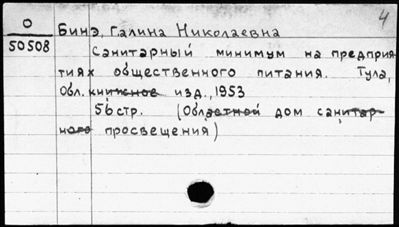 4
О
50508
Бинэ, Галина Николаевна
Санитарный минимум на предприя-
тиях общественного питания. Тула,
Обл. книжное изд., 1953
56 стр. (Областной дом санитар-
ного просвещения)